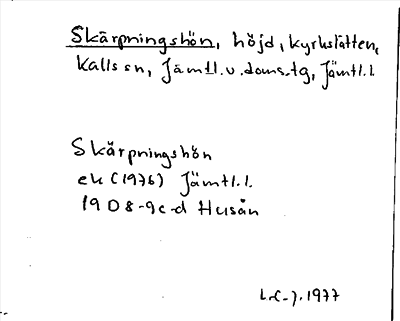 Skärpningshön, höjd, kyrkslätten,
Kalls sn, Jämtl.v.doms.tg, Jämtl.l.
Skärpningshön
ek (1976) Jämtl.l.
19D 8-9c-d Husån
L.C-J. 1977